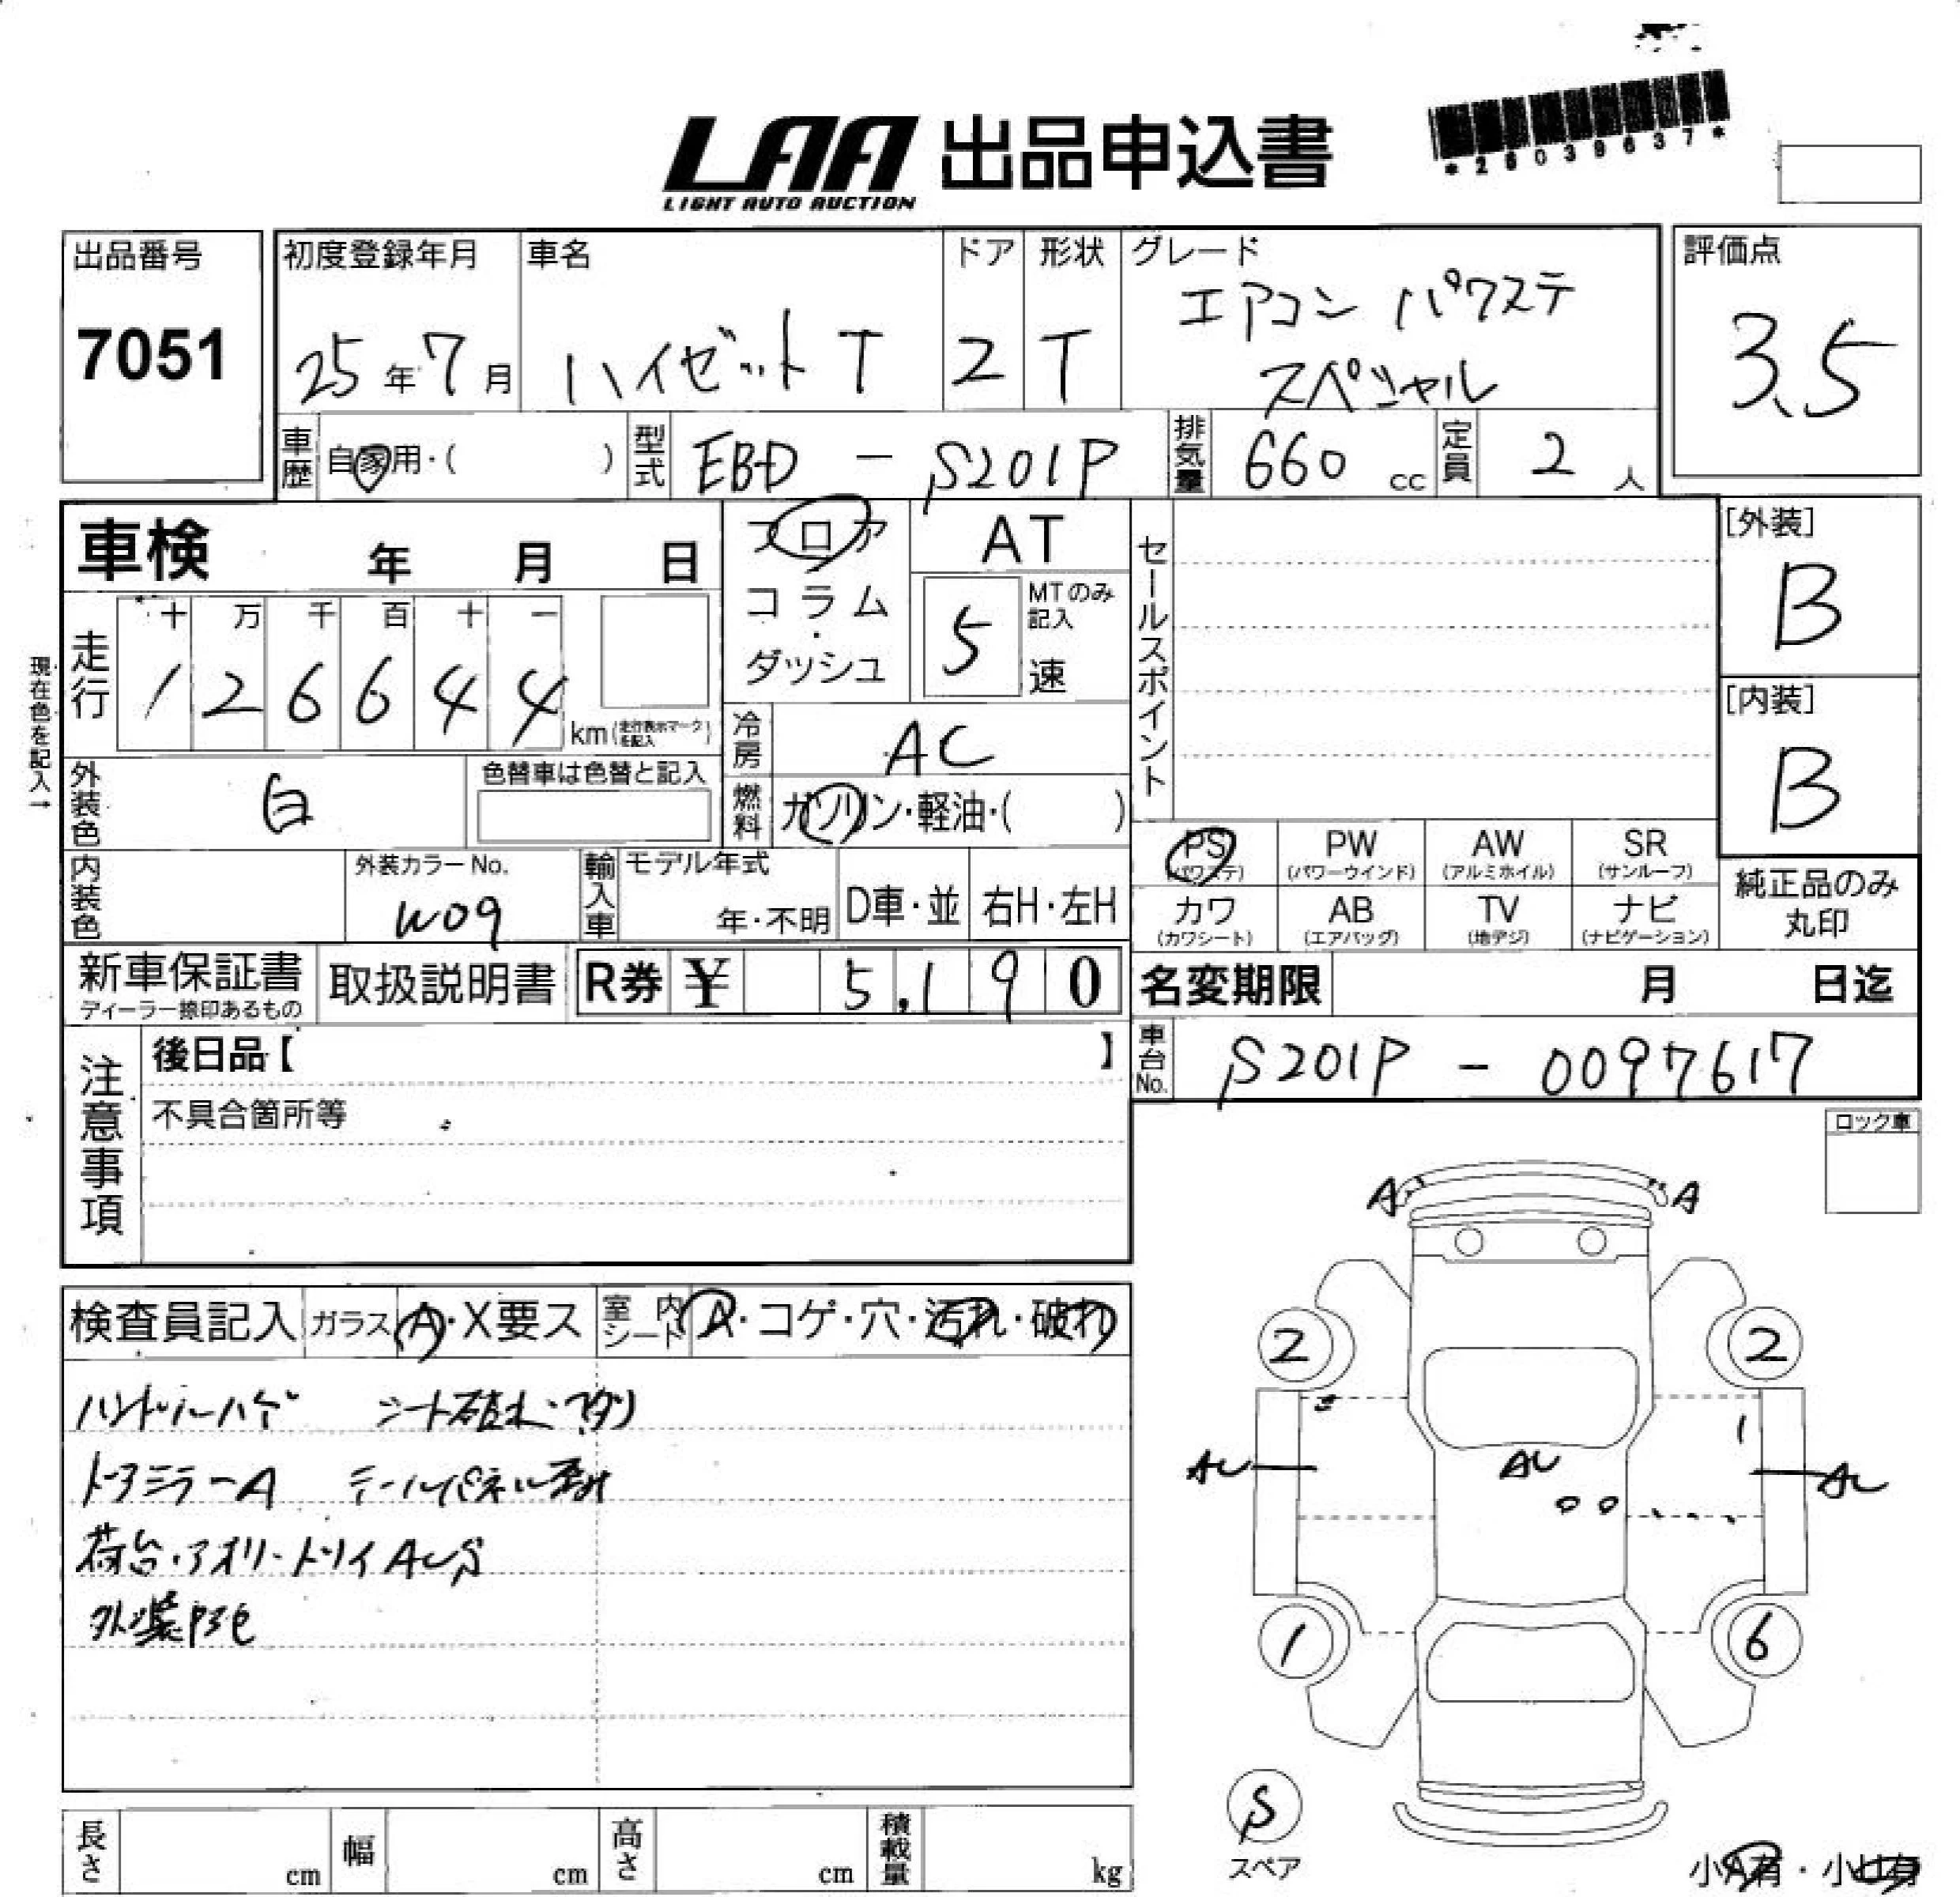 LAA 出品申込書
LIGHT AUTO AUCTION
*26039637*
出品番号
7051
初度登録年月
25年7月
車名
ハイゼットT
ドア
2
形状
T
グレード
エアコン パワステ
スペシャル
評価点
3.5
車歴 自家用・( )
型式 EBD - S201P
排気量 660 cc
定員 2 人
車検 年 月 日
フロア
コラム
・
ダッシュ
AT
5 MTのみ記入 速
セールスポイント
[外装]
B
[内装]
B
現在色を記入→
走行 十 万 千 百 十 一
1 2 6 6 4 4 km (走行表示マークを記入)
冷房 AC
燃料 ガソリン・軽油・( )
外装色 白
色替車は色替と記入
内装色
外装カラーNo.
W09
輸入車 モデル年式
年・不明 D車・並 右H・左H
PS (パワステ) PW (パワーウインド) AW (アルミホイル) SR (サンルーフ)
カワ (カワシート) AB (エアバッグ) TV (地デジ) ナビ (ナビゲーション)
純正品のみ
丸印
新車保証書
ディーラー捺印あるもの
取扱説明書
R券 ¥ 5,190
名変期限 月 日迄
車台No. S201P - 0097617
注意事項
後日品【 】
不具合箇所等
ロック車
検査員記入 ガラス A・X要ス 室内シート A・コゲ・穴・汚れ・破れ
ハンドルハゲ シート破れ・フタリ
ドアミラーA テールパネル歪み
荷台・アオリ・トリイAUS
外装アセ
A A
2 2
AU AU AU
1 6
S
スペア
長さ cm 幅 cm 高さ cm 積載量 kg
小A有・小U有